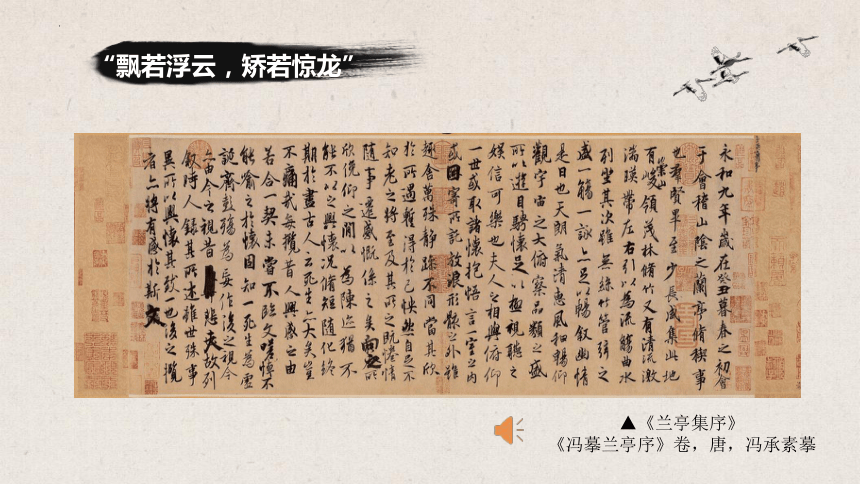 “飘若浮云，矫若惊龙”
永和九年歲在癸丑暮春之初會
于會稽山陰之蘭亭脩稧事
也羣賢畢至少長咸集此地
崇山
有峻領茂林脩竹又有清流激
湍暎帶左右引以為流觴曲水
列坐其次雖無絲竹管弦之
盛一觴一詠亦足以暢叙幽情
是日也天朗氣清惠風和暢仰
觀宇宙之大俯察品類之盛
所以遊目騁懷足以極視聽之
娛信可樂也夫人之相與俯仰
一世或取諸懷抱悟言一室之內
或因寄所託放浪形骸之外雖
趣舍萬殊靜躁不同當其欣
於所遇蹔得於己怏然自足不
知老之將至及其所之既惓情
隨事遷感慨係之矣向之所
欣俛仰之間以為陳迹猶不
能不以之興懷況脩短隨化終
期於盡古人云死生亦大矣豈
不痛哉每攬昔人興感之由
若合一契未嘗不臨文嗟悼不
能喻之於懷固知一死生為虛
誕齊彭殤為妄作後之視今
亦由今之視昔悲夫故列
叙時人錄其所述雖世殊事
異所以興懷其致一也後之攬
者亦將有感於斯文
▲《兰亭集序》
《冯摹兰亭序》卷，唐，冯承素摹